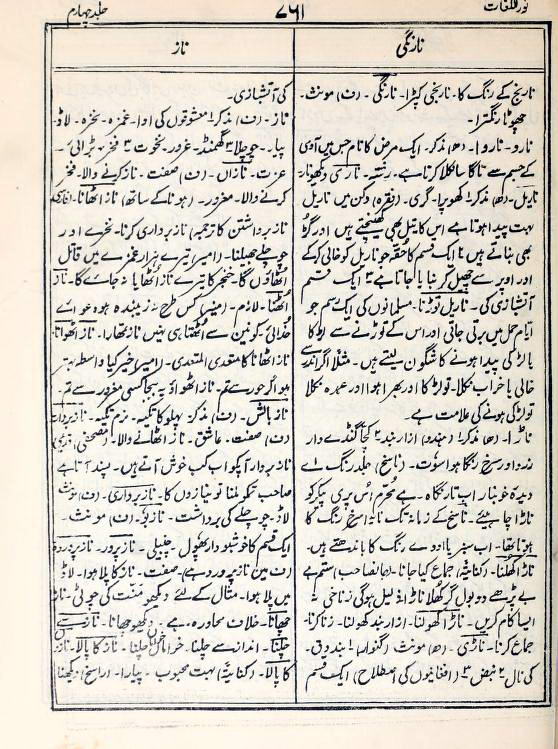 نوراللغات
۷۶۱
جلد چہارم
نارنگی
ناز
نارنج کے رنگ کا۔ نارنجی کپڑا۔ نارنگی۔ (ف) مونث۔
چھوٹا رنگترا
نارو۔ ناروا۔ (ھ) مذکر۔ ایک مرض کا نام جس میں آدمی
کے جسم سے تاگا سا نکلا کرتا ہے۔ رشتہ۔ نارسی دیکھو نار
ناریل۔ (ھ) مذکر ۱ کھوپرا۔ گری۔ (فقرہ) دکن میں ناریل
بہت پیدا ہوتا ہے اس کا تیل بھی کھینچتے ہیں اور گڑ
بھی بناتے ہیں ۲ ایک قسم کا حقہ جو ناریل کو خالی کر کے
اور اوپر سے چھیل کر بنایا جاتا ہے ۳ ایک قسم
آتشبازی کی۔ ناریل توڑنا۔ مسلمانوں کی ایک رسم جو
ایام حمل میں برتی جاتی اور اس کے توڑنے سے لڑکا
یا لڑکی پیدا ہونے کا شگون لیتے ہیں۔ مثلاً اگر اندر سے
خالی یا خراب نکلا۔ تو لڑکا اور بھرا ہوا اور عمدہ نکلا
تو لڑکی ہونے کی علامت ہے۔
ناڑا۔ (ھ) مذکر ۱ (ہندو) ازاربند ۲ کچا گنڈے دار
زرد اور سرخ رنگا ہوا سوت۔ (ناسخ)
دیدۂ خونبار اب تار نگاہ۔ ہے محرم اس پری پیکر کو
ناڑا چاہیئے۔ ناسخ کے زمانہ تک ناڑا سرخ رنگ کا
ہوتا تھا۔ اب سبز یا اودے رنگ کا باندھتے ہیں۔
ناڑا کھلنا۔ (کنایۃً) جماع کیا جانا۔ (جانصاحب) ستم ہے
بے پڑھے دو بول گر کھلا ناڑا۔ ذلیل ہوگی زناخی
ایسا کام کریں۔ ناڑا کھولنا۔ ازاربند کھولنا۔ زنا کرنا۔
جماع کرنا۔ ناڑی۔ (ھ) مونث (گنوار) ۱ بندوق۔
کی نال ۲ نبض ۳ (افغانیوں کی اصطلاح) ایک قسم
کی آتشبازی۔
ناز۔ (ف) مذکر ۱ معشوقوں کی ادا۔ غمزہ۔ نخرہ ۲ لاڈ۔
پیار۔ چوچلا ۳ گھمنڈ۔ غرور۔ نخوت ۴ فخر۔ بڑائی۔
عزت۔ نازاں۔ (ف) صفت۔ ناز کرنے والا۔ فخر
کرنے والا۔ مغرور۔ (ہونا کے ساتھ) ناز اٹھانا۔ (فارسی
ناز برداشتن کا ترجمہ) ناز برداری کرنا۔ نخرے اور
چوچلے جھیلنا۔ (امیر) تیرے ہزار غمزے میں قاتل
اٹھاؤں گا۔ خنجر کا تیرے ناز اٹھایا نہ جائے گا۔ ناز
اٹھنا۔ لازم۔ (امیر) کس طرح نہ زیبندہ ہو دعوائے
خدائی۔ کونین سے اٹھتا ہی نہیں ناز تمہارا۔ ناز اٹھوانا
ناز اٹھانا کا متعدی المتعدی۔ (امیر) خیر کیا واسطہ بہتر
ہو اگر حور سے تم۔ ناز اٹھواؤ یہ بیجا کسی مغرور سے تم۔
ناز بالش۔ (ف) مذکر۔ پہلو کا تکیہ۔ نرم تکیہ۔ نازبردار
(ف) صفت۔ عاشق۔ ناز اٹھانے والا۔ (مصحفی)
نازبردار آپکو اب کب خوش آتے ہیں۔ پسند آتا ہے
صاحب تکو ملنا تو نیازوں کا۔ نازبرداری۔ (ف) مونث
لاڈ۔ چوچلے کی برداشت۔ نازبو۔ (ف) مونث۔
ایک قسم کا خوشبودار پھول۔ چنبیلی۔ ناز پرور۔ ناز پروردہ
(ف میں ناز پرور دہے) صفت۔ ناز کا پلا ہوا۔ لاڈ
میں پلا ہوا۔ مثال کے لئے دیکھو منت کی چوٹی۔ ناز
چھانا۔ خلاف محاورہ ہے۔ دیکھو چھانا۔ ناز سے
چلنا۔ انداز سے چلنا۔ خوش خرامی چلنا۔ ناز کا پالا۔ ناز
کا پالا۔ (کنایۃً) بہت محبوب۔ پیارا۔ (راسخ) دیکھنا